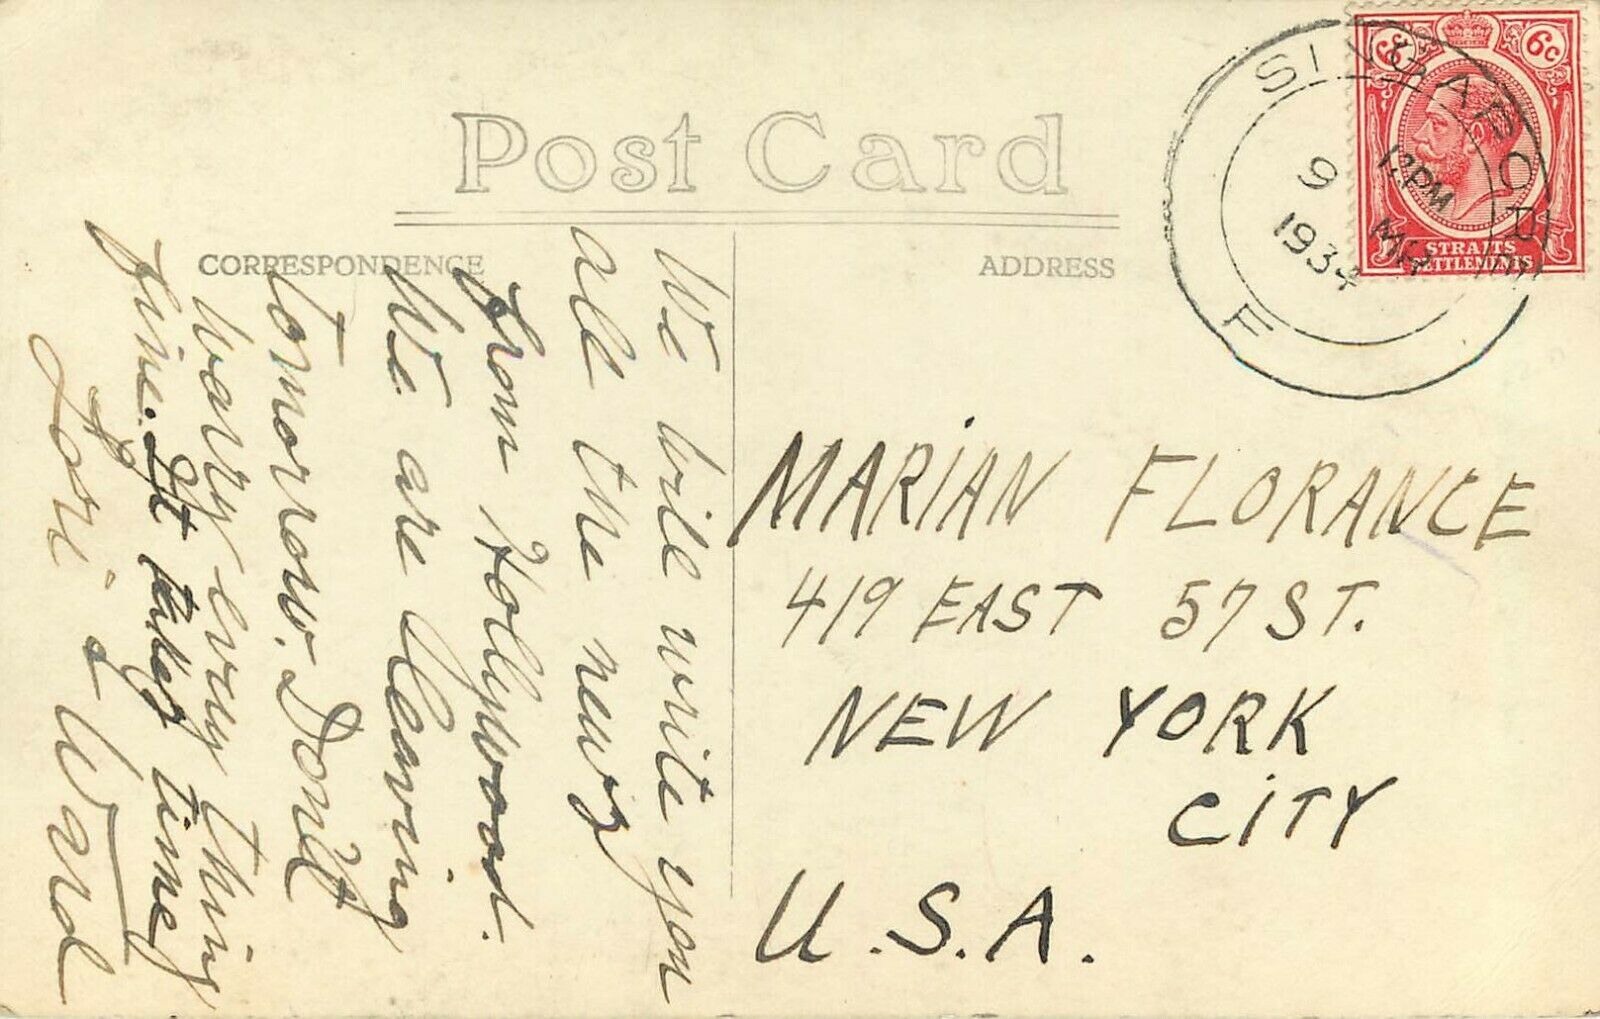 Post Card
CORRESPONDENCE
ADDRESS
SINGAPORE
12 PM
9 MR
1934
F
6c
STRAITS
SETTLEMENTS
We will write you
all the news
from Hollywood.
We are leaving
Tomorrow. Don't
warry every thing
fine. It takes time
Lori & Ward
MARIAN FLORANCE
419 EAST 57 ST.
NEW YORK
CITY
U.S.A.